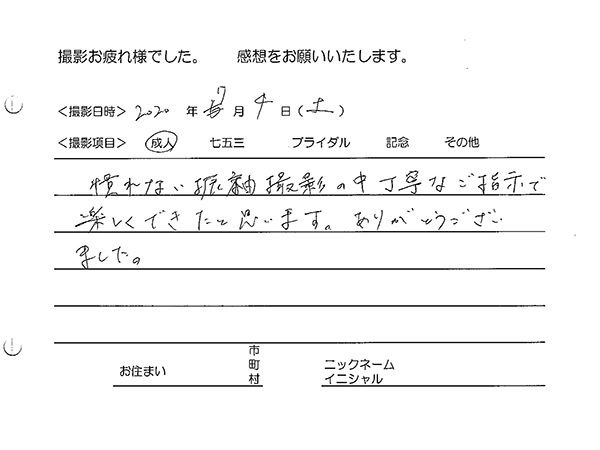 撮影お疲れ様でした。 感想をお願いいたします。
＜撮影日時＞ 2020 年 7 月 4 日（土）
＜撮影項目＞ 成人 七五三 ブライダル 記念 その他
慣れない振袖撮影の中丁寧なご指示で
楽しくできたと思います。ありがとうござい
ました。
お住まい 市町村 ニックネーム イニシャル